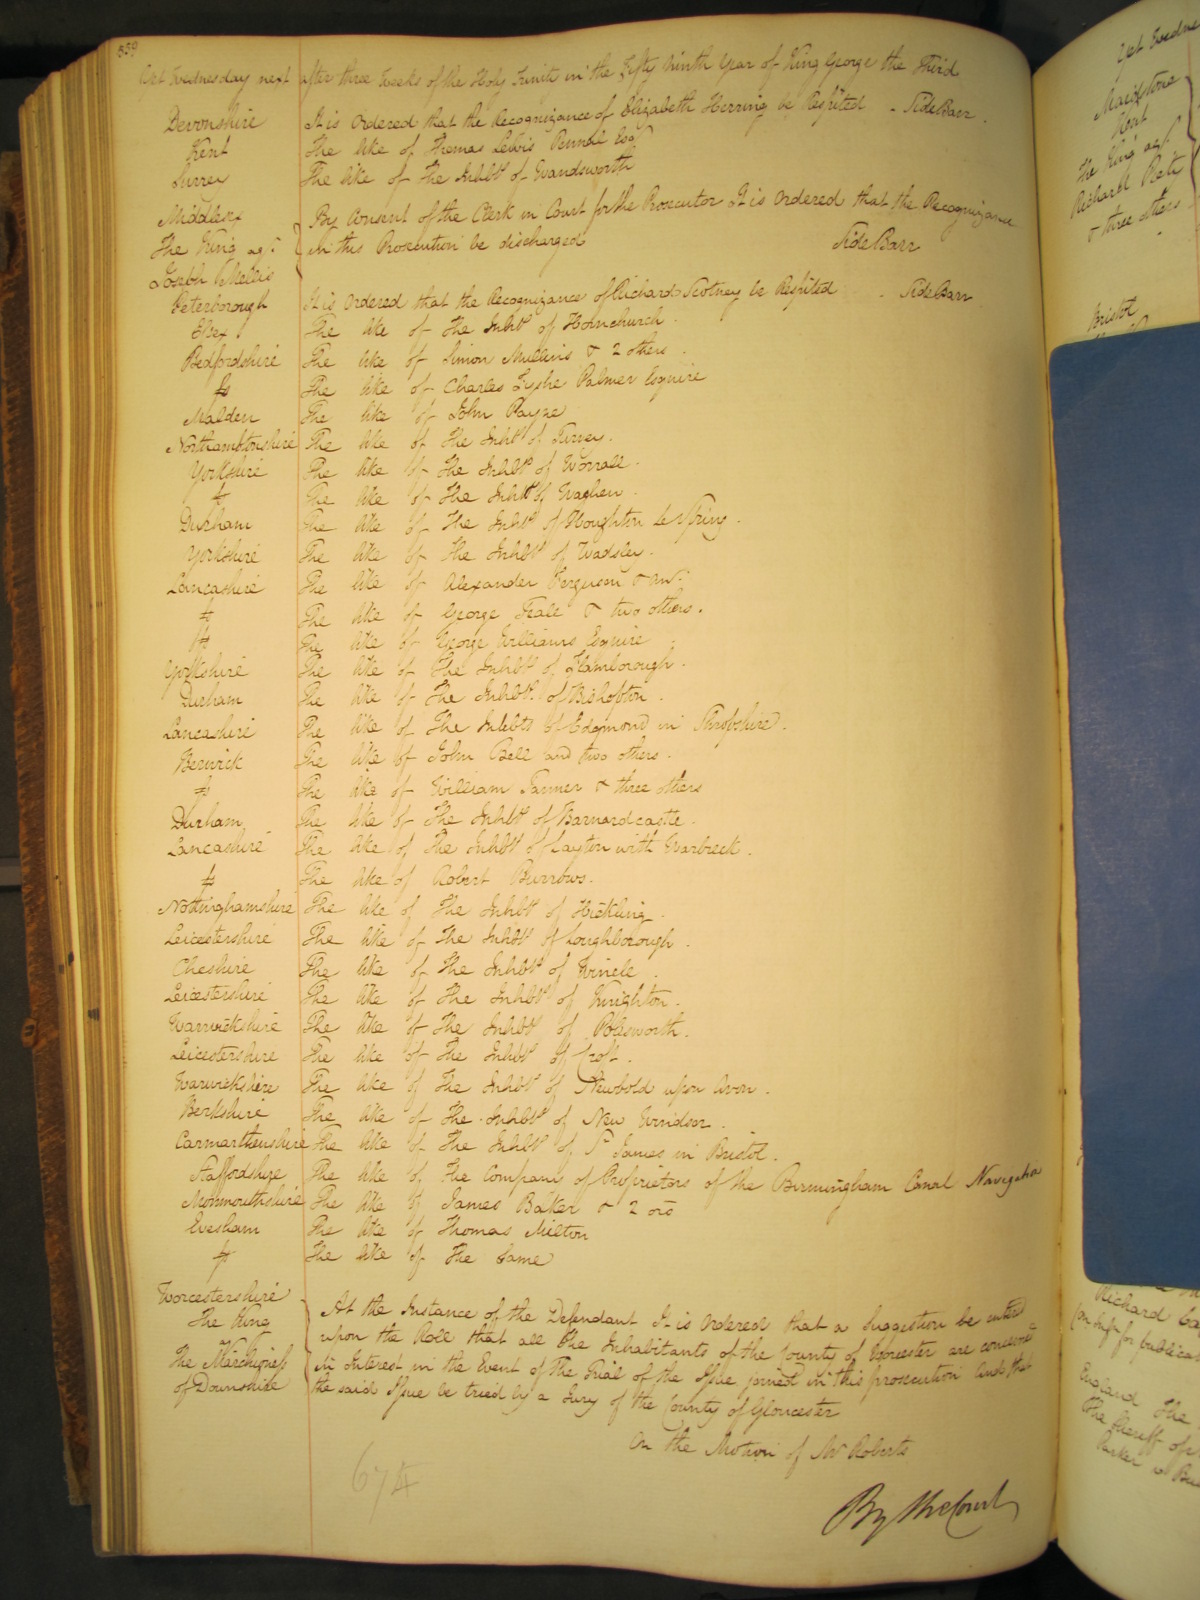 339
Yet Wednesday next after three Weeks of the Holy Trinity in the Fifty Ninth Year of King George the Third
Devonshire It is Ordered that the Recognizance of Elizabeth Herring be Respited - Side Barr.
Kent The like of Thomas Lewis Esqr
Surrey The like of The Inhbts of Wandsworth
Middlesex By Consent of the Clerk in Court for the Prosecutor It is Ordered that the Recognizance
The King agt. in this Prosecution be discharged Side Barr
Joseph Mellis
Peterborough It is Ordered that the Recognizance of Richard Scotney be Respited - Side Barr
Essex The like of The Inhbts of Hornchurch.
Bedfordshire The like of Simon Mullins & 2 others.
The like of Charles Fyshe Palmer Esquire
Malden The like of John Payne
Northamptonshire The like of The Inhbts of Turvey.
Yorkshire The like of The Inhbts of Worrall.
The like of The Inhbts of Waghen.
Durham The like of The Inhbts of Houghton le Spring.
Yorkshire The like of The Inhbts of Wadsley.
Lancashire The like of Alexander Ferguson & anr.
The like of George & two others.
The like of George Williams Esquire
Yorkshire The like of The Inhbts of Flamborough.
Durham The like of The Inhbts of Bishopton.
Lancashire The like of The Inhbts of Edgmond in Shropshire.
Berwick The like of John Bell and two others.
The like of William & three others
Durham The like of The Inhbts of Barnardcastle.
Lancashire The like of The Inhbts of Layton with Warbreck.
The like of Robert Burrows.
Nottinghamshire The like of The Inhbts of Hickling.
Leicestershire The like of The Inhbts of Loughborough.
Cheshire The like of The Inhbts of Wincle.
Leicestershire The like of The Inhbts of Knighton.
Warwickshire The like of The Inhbts of Polesworth.
Leicestershire The like of The Inhbts of Croft.
Warwickshire The like of The Inhbts of Newbold upon Avon.
Berkshire The like of The Inhbts of New Windsor.
Carmarthenshire The like of The Inhbts of St James in Bristol.
Staffordshire The like of The Company of Proprietors of the Birmingham Canal Navigation
Monmouthshire The like of James Baker & 2 ors
Evesham The like of Thomas Milton
The like of The Same
Worcestershire At the Instance of the Defendant It is Ordered that a Suggestion be entered
The King upon the Roll that all the Inhabitants of the County of Worcester are concerned
agt
The Marchioness in Interest in the Event of the Trial of the Issue joined in this prosecution And that
of Downshire the said Issue be tried by a Jury of the County of Gloucester
On the Motion of Mr Roberts
By the Court
674
Maidstone
Kent
The King agt.
Richard
& three others
Bristol
Richard
England The
The Sheriff of